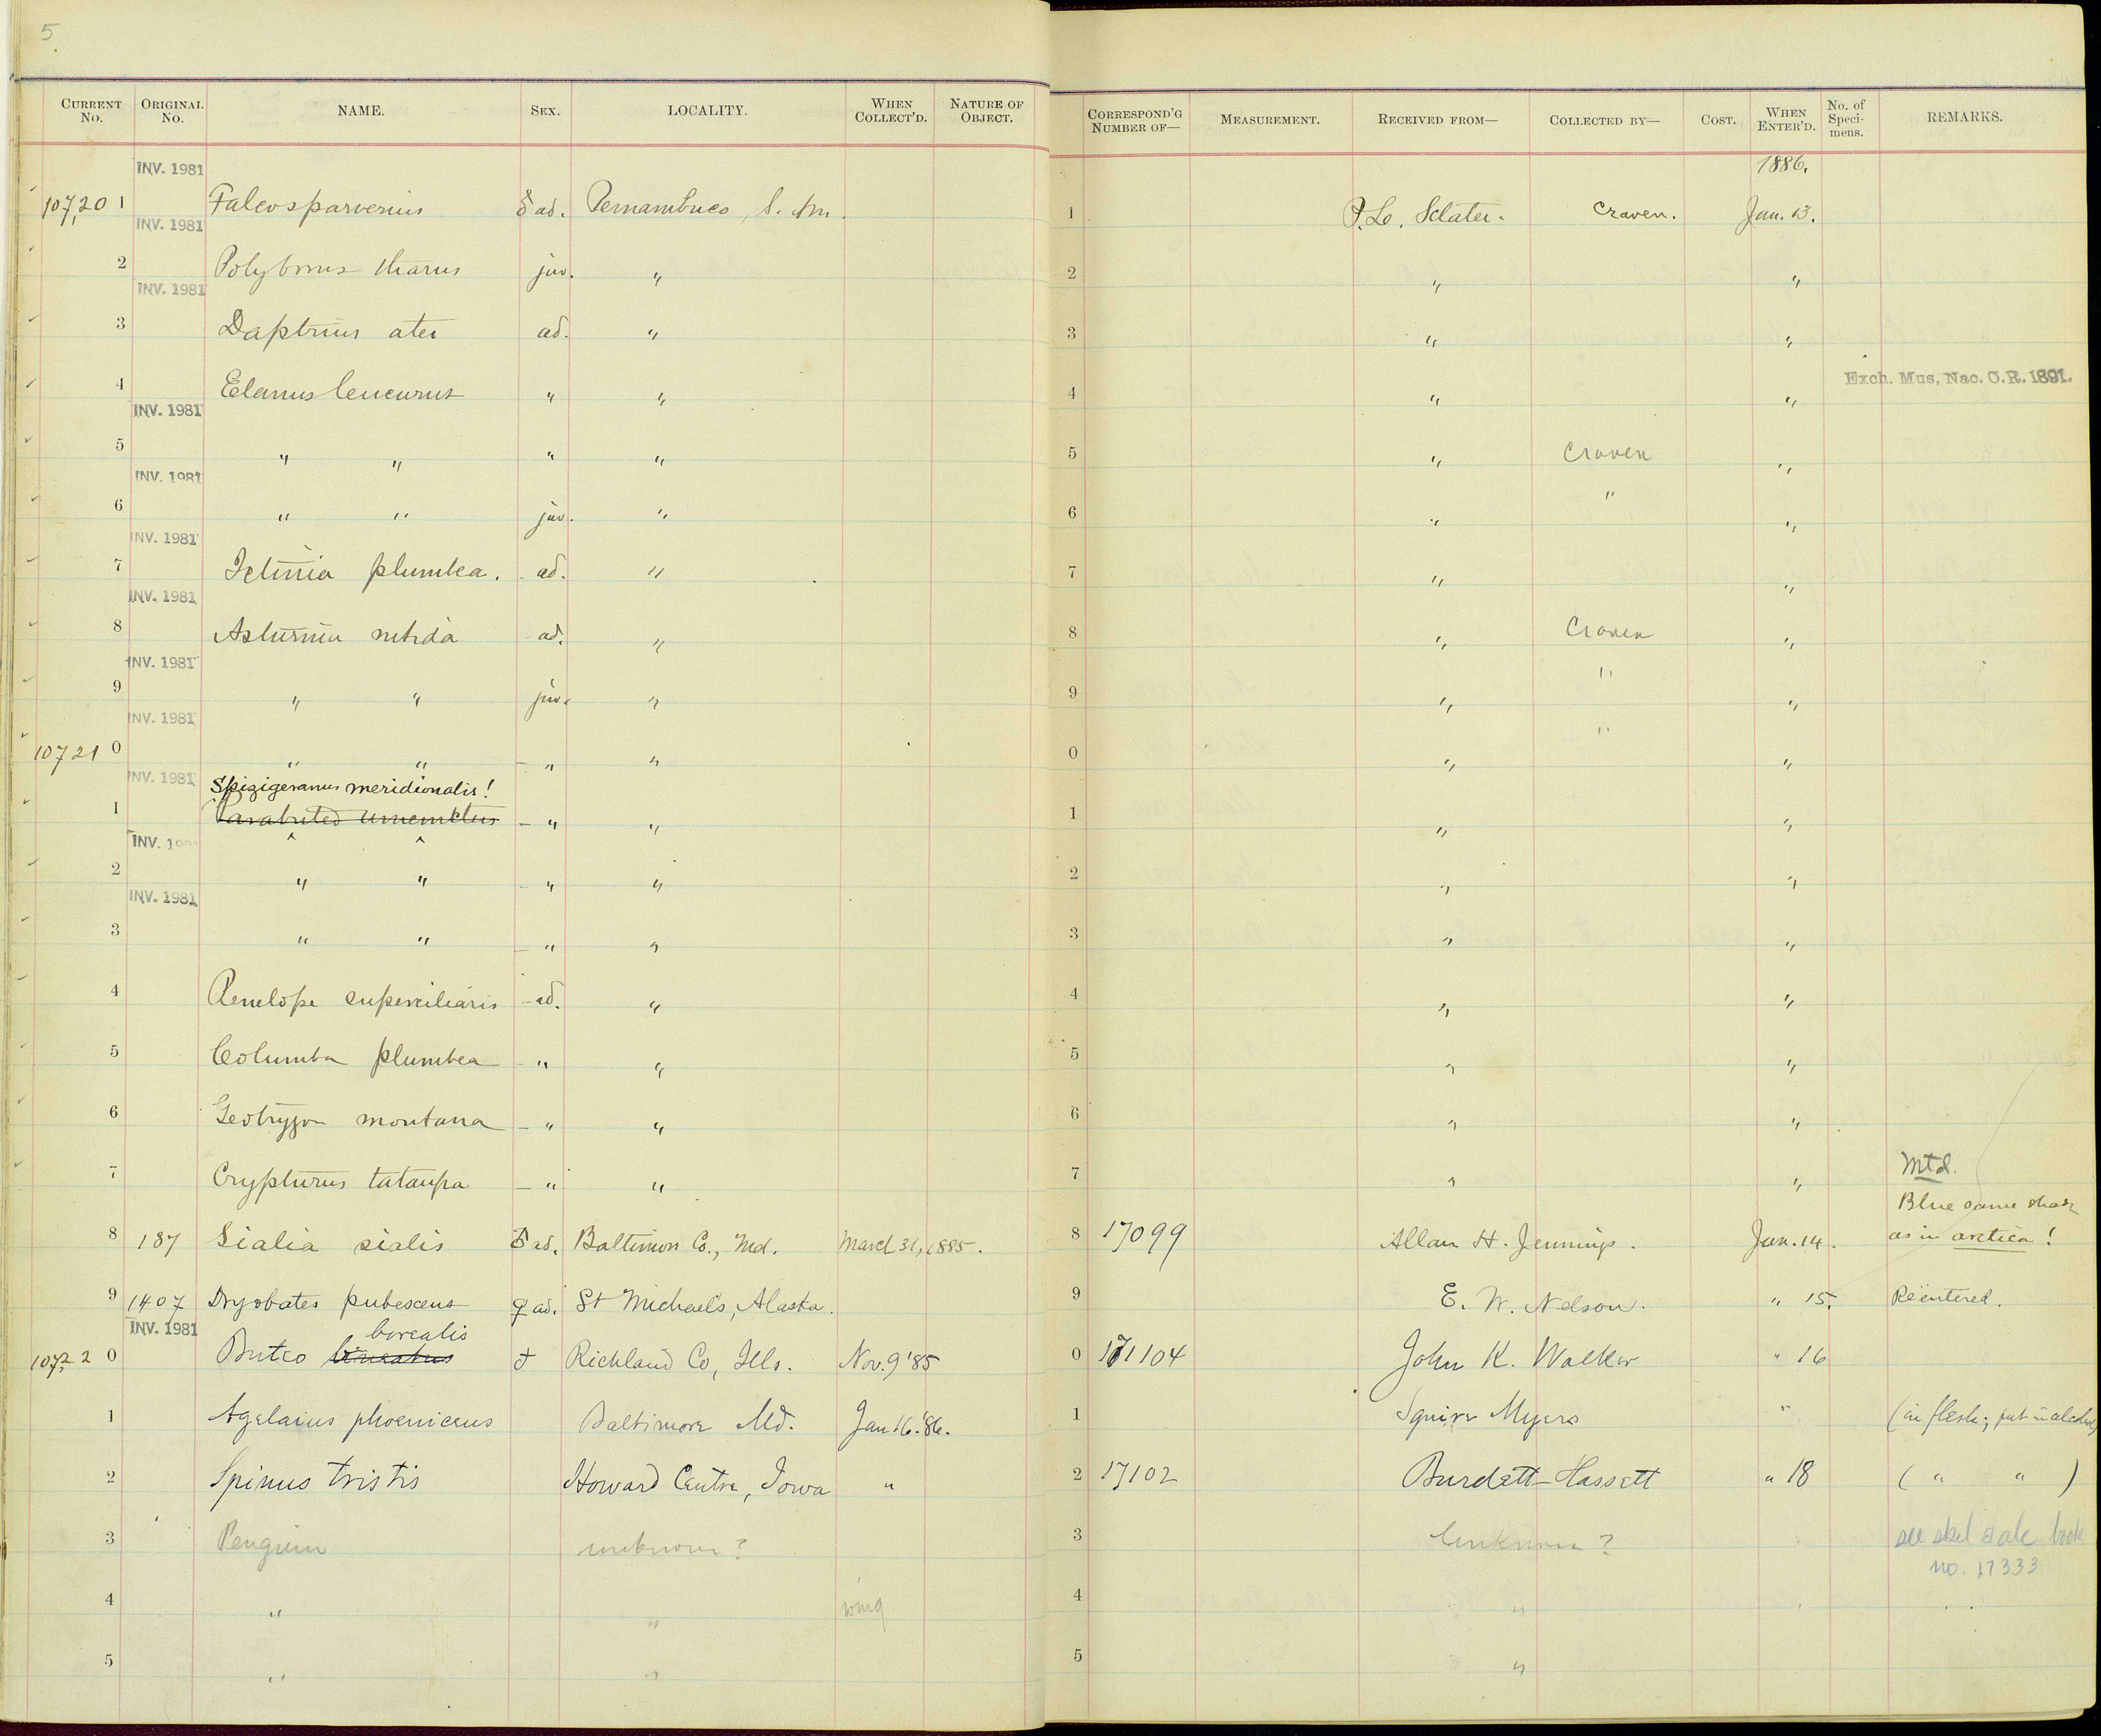 5
CURRENT No. ORIGINAL No. NAME. SEX. LOCALITY. WHEN COLLECT'D. NATURE OF OBJECT. CORRESPOND'G NUMBER OF— MEASUREMENT. RECEIVED FROM— COLLECTED BY— COST. WHEN ENTER'D. No. of Specimens. REMARKS.
INV. 1981 1886.
107,20 1 Falco sparverius ♂ ad. Pernambuco, S. Am. 1 P. L. Sclater. Craven. Jan. 13.
INV. 1981
2 Polyborus tharus juv. " 2 " "
INV. 1981
3 Daptrius ater ad. " 3 " "
4 Elanus leucurus " " 4 " " Exch. Mus, Nac. C.R. 1891.
INV. 1981
5 " " " " 5 " Craven "
INV. 1981
6 " " juv. " 6 " " "
INV. 1981
7 Ictinia plumbea. ad. " 7 " "
INV. 1981
8 Asturina nitida ad. " 8 " Craven "
INV. 1981
9 " " juv. " 9 " " "
INV. 1981
10721 0 " " " " 0 " " "
INV. 1981 Spizigeranus meridionalis!
1 Parabuteo unicinctus " " 1 " "
INV. 1981
2 " " " " 2 " "
INV. 1981
3 " " " " 3 " "
4 Penelope superciliaris ad. " 4 " "
5 Columba plumbea " " 5 " "
6 Geotrygon montana " " 6 " "
7 Crypturus tataupa " " 7 " " Mtd.
Blue same shade
8 187 Sialia sialis ♂ ad. Baltimore Co., Md. March 31, 1885. 8 17099 Allan H. Jennings. Jan. 14. as in arctica!
9 1407 Dryobates pubescens ♀ ad. St Michaels, Alaska. 9 E. W. Nelson. " 15. Reëntered.
INV. 1981 borealis
107,22 0 Buteo lineatus ♂ Richland Co, Ills. Nov. 9 '85 0 171104 John K. Walker " 16
1 Agelaius phoeniceus Baltimore Md. Jan 16. '86. 1 Squire Myers " (in flesh; put in alcohol)
2 Spinus tristis Howard Centre, Iowa " 2 17102 Burdett Hassett " 18 ( " " )
3 Penguin unknown? 3 Unknown? see skel cale book
no. 17333
4 " " wing 4 "
5 " " 5 "